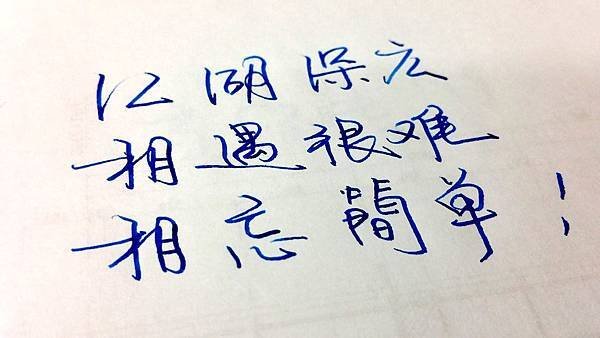 江湖深広
相遇很难
相忘簡单！